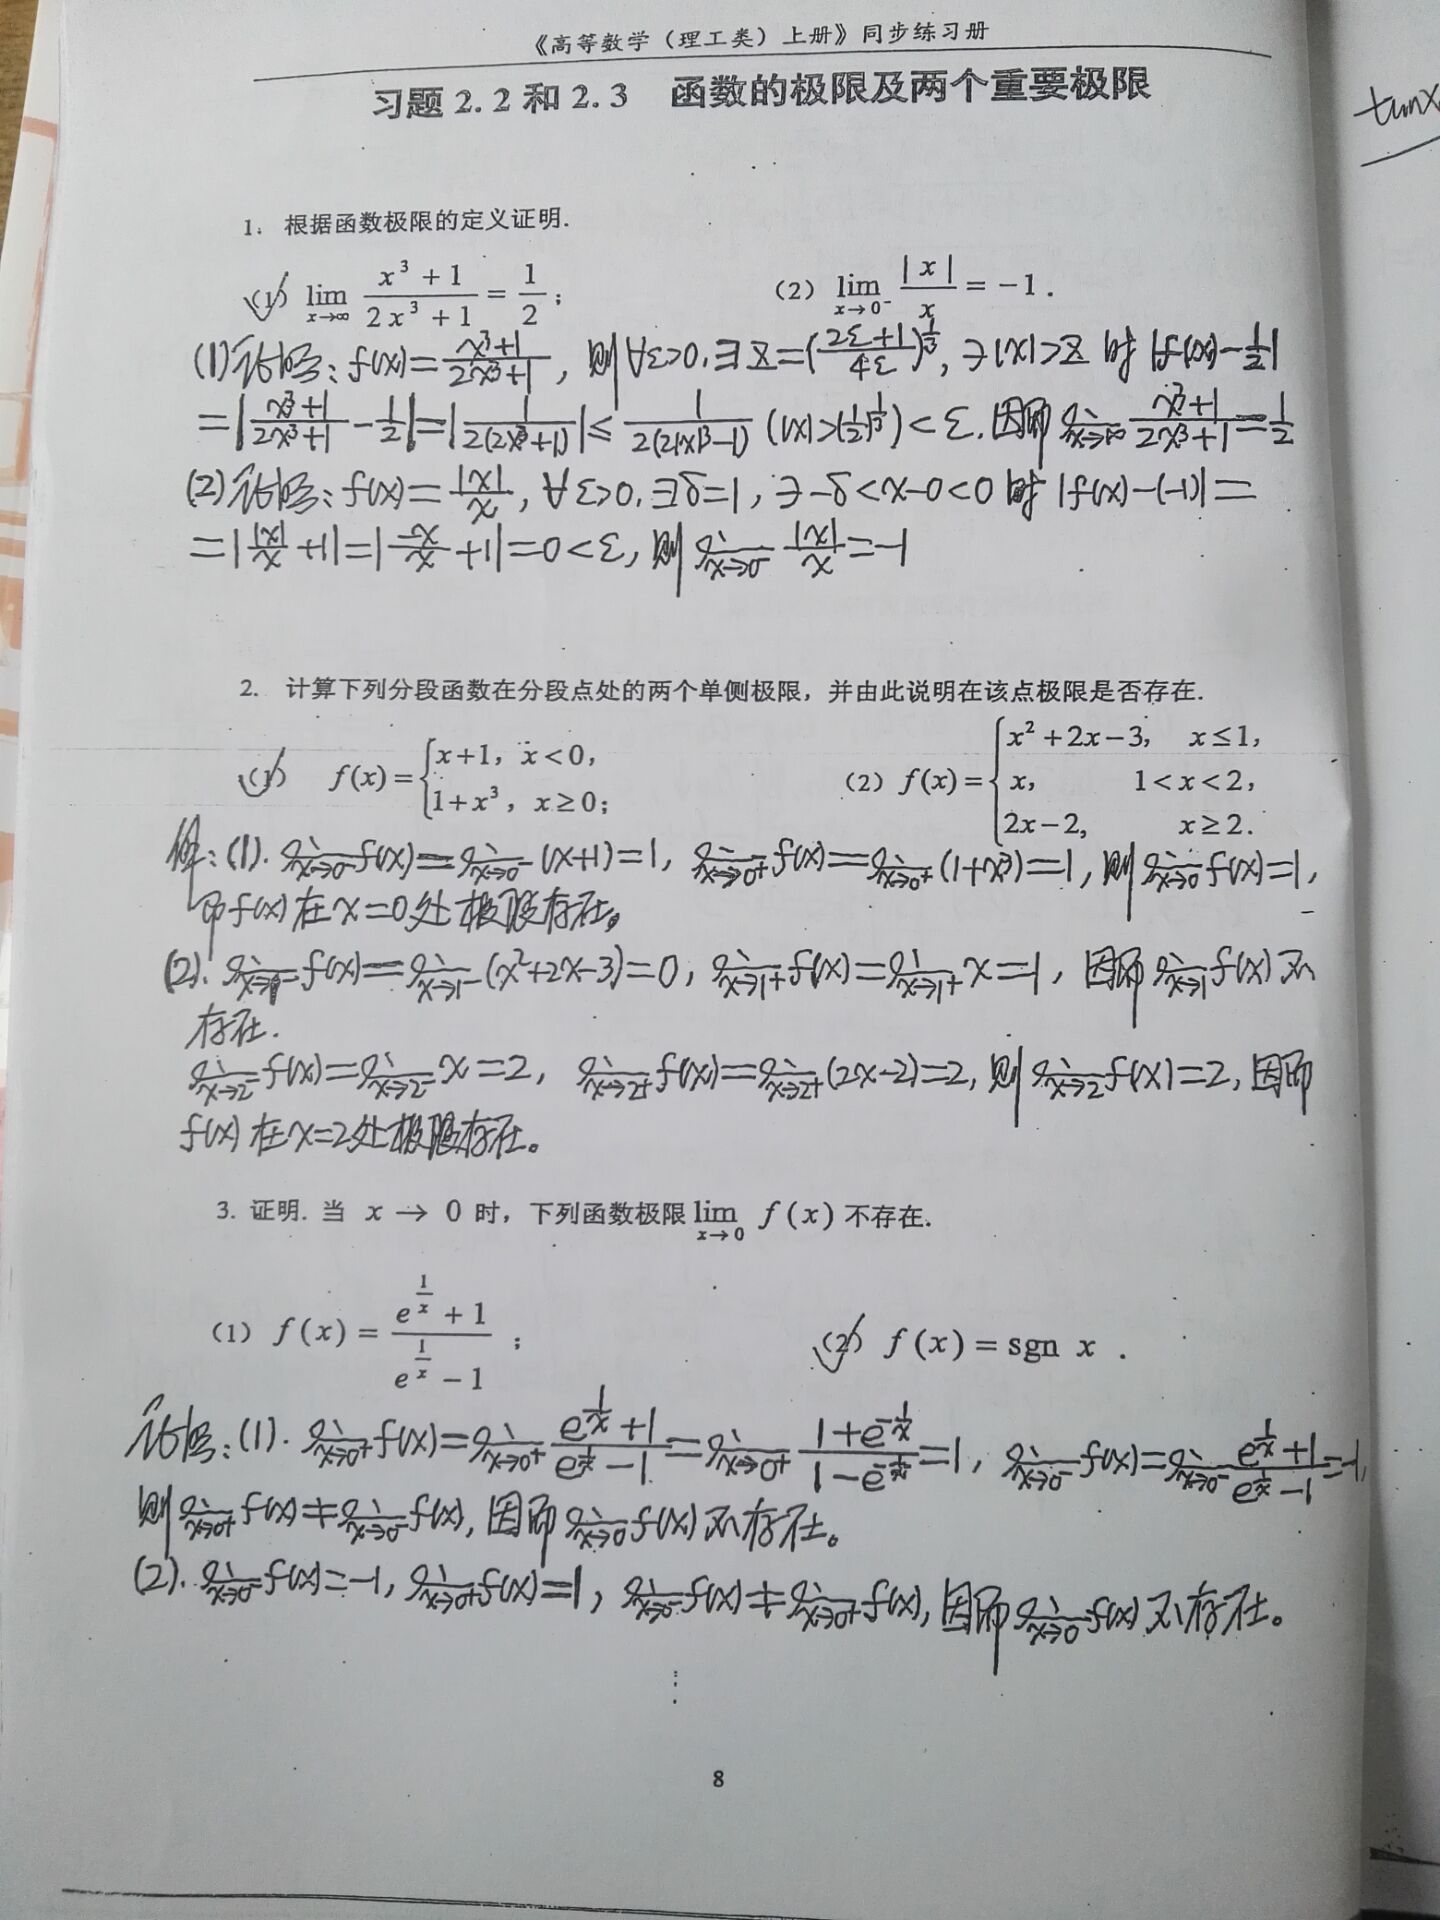 《高等数学（理工类）上册》同步练习册
习题2.2和2.3 函数的极限及两个重要极限
tanx
1. 根据函数极限的定义证明.
(1) lim_{x→∞} (x³+1)/(2x³+1) = 1/2; (2) lim_{x→0⁻} |x|/x = -1.
(1)证明: f(x)=(x³+1)/(2x³+1), 则∀ε>0, ∃Z=((2ε+1)/4ε)^{1/3}, ∋|x|>Z时|f(x)-1/2|
=|(x³+1)/(2x³+1)-1/2|=|1/(2(2x³+1))|≤1/(2(2|x|³-1)) (|x|>(1/2)^{1/3})<ε. 因而lim_{x→∞} (x³+1)/(2x³+1)=1/2
(2)证明: f(x)=|x|/x, ∀ε>0, ∃δ=1, ∋-δ<x-0<0时|f(x)-(-1)|=
=||x|/x+1|=|-x/x+1|=0<ε, 则lim_{x→0⁻} |x|/x=-1
2. 计算下列分段函数在分段点处的两个单侧极限，并由此说明在该点极限是否存在.
(1) f(x)={x+1, x<0, 1+x³, x≥0; (2) f(x)={x²+2x-3, x≤1, x, 1<x<2, 2x-2, x≥2.
解:(1). lim_{x→0⁻}f(x)=lim_{x→0⁻}(x+1)=1, lim_{x→0⁺}f(x)=lim_{x→0⁺}(1+x³)=1, 则lim_{x→0}f(x)=1,
即f(x)在x=0处极限存在。
(2). lim_{x→1⁻}f(x)=lim_{x→1⁻}(x²+2x-3)=0, lim_{x→1⁺}f(x)=lim_{x→1⁺}x=1, 因而lim_{x→1}f(x)不
存在.
lim_{x→2⁻}f(x)=lim_{x→2⁻}x=2, lim_{x→2⁺}f(x)=lim_{x→2⁺}(2x-2)=2, 则lim_{x→2}f(x)=2, 因而
f(x)在x=2处极限存在。
3. 证明. 当 x → 0 时，下列函数极限 lim_{x→0} f(x) 不存在.
(1) f(x)=(e^{1/x}+1)/(e^{1/x}-1); (2) f(x)=sgn x.
证明:(1). lim_{x→0⁺}f(x)=lim_{x→0⁺}(e^{1/x}+1)/(e^{1/x}-1)=lim_{x→0⁺}(1+e^{-1/x})/(1-e^{-1/x})=1, lim_{x→0⁻}f(x)=lim_{x→0⁻}(e^{1/x}+1)/(e^{1/x}-1)=-1,
则lim_{x→0⁺}f(x)≠lim_{x→0⁻}f(x), 因而lim_{x→0}f(x)不存在。
(2). lim_{x→0⁻}f(x)=-1, lim_{x→0⁺}f(x)=1, lim_{x→0⁻}f(x)≠lim_{x→0⁺}f(x), 因而lim_{x→0}f(x)不存在。
8